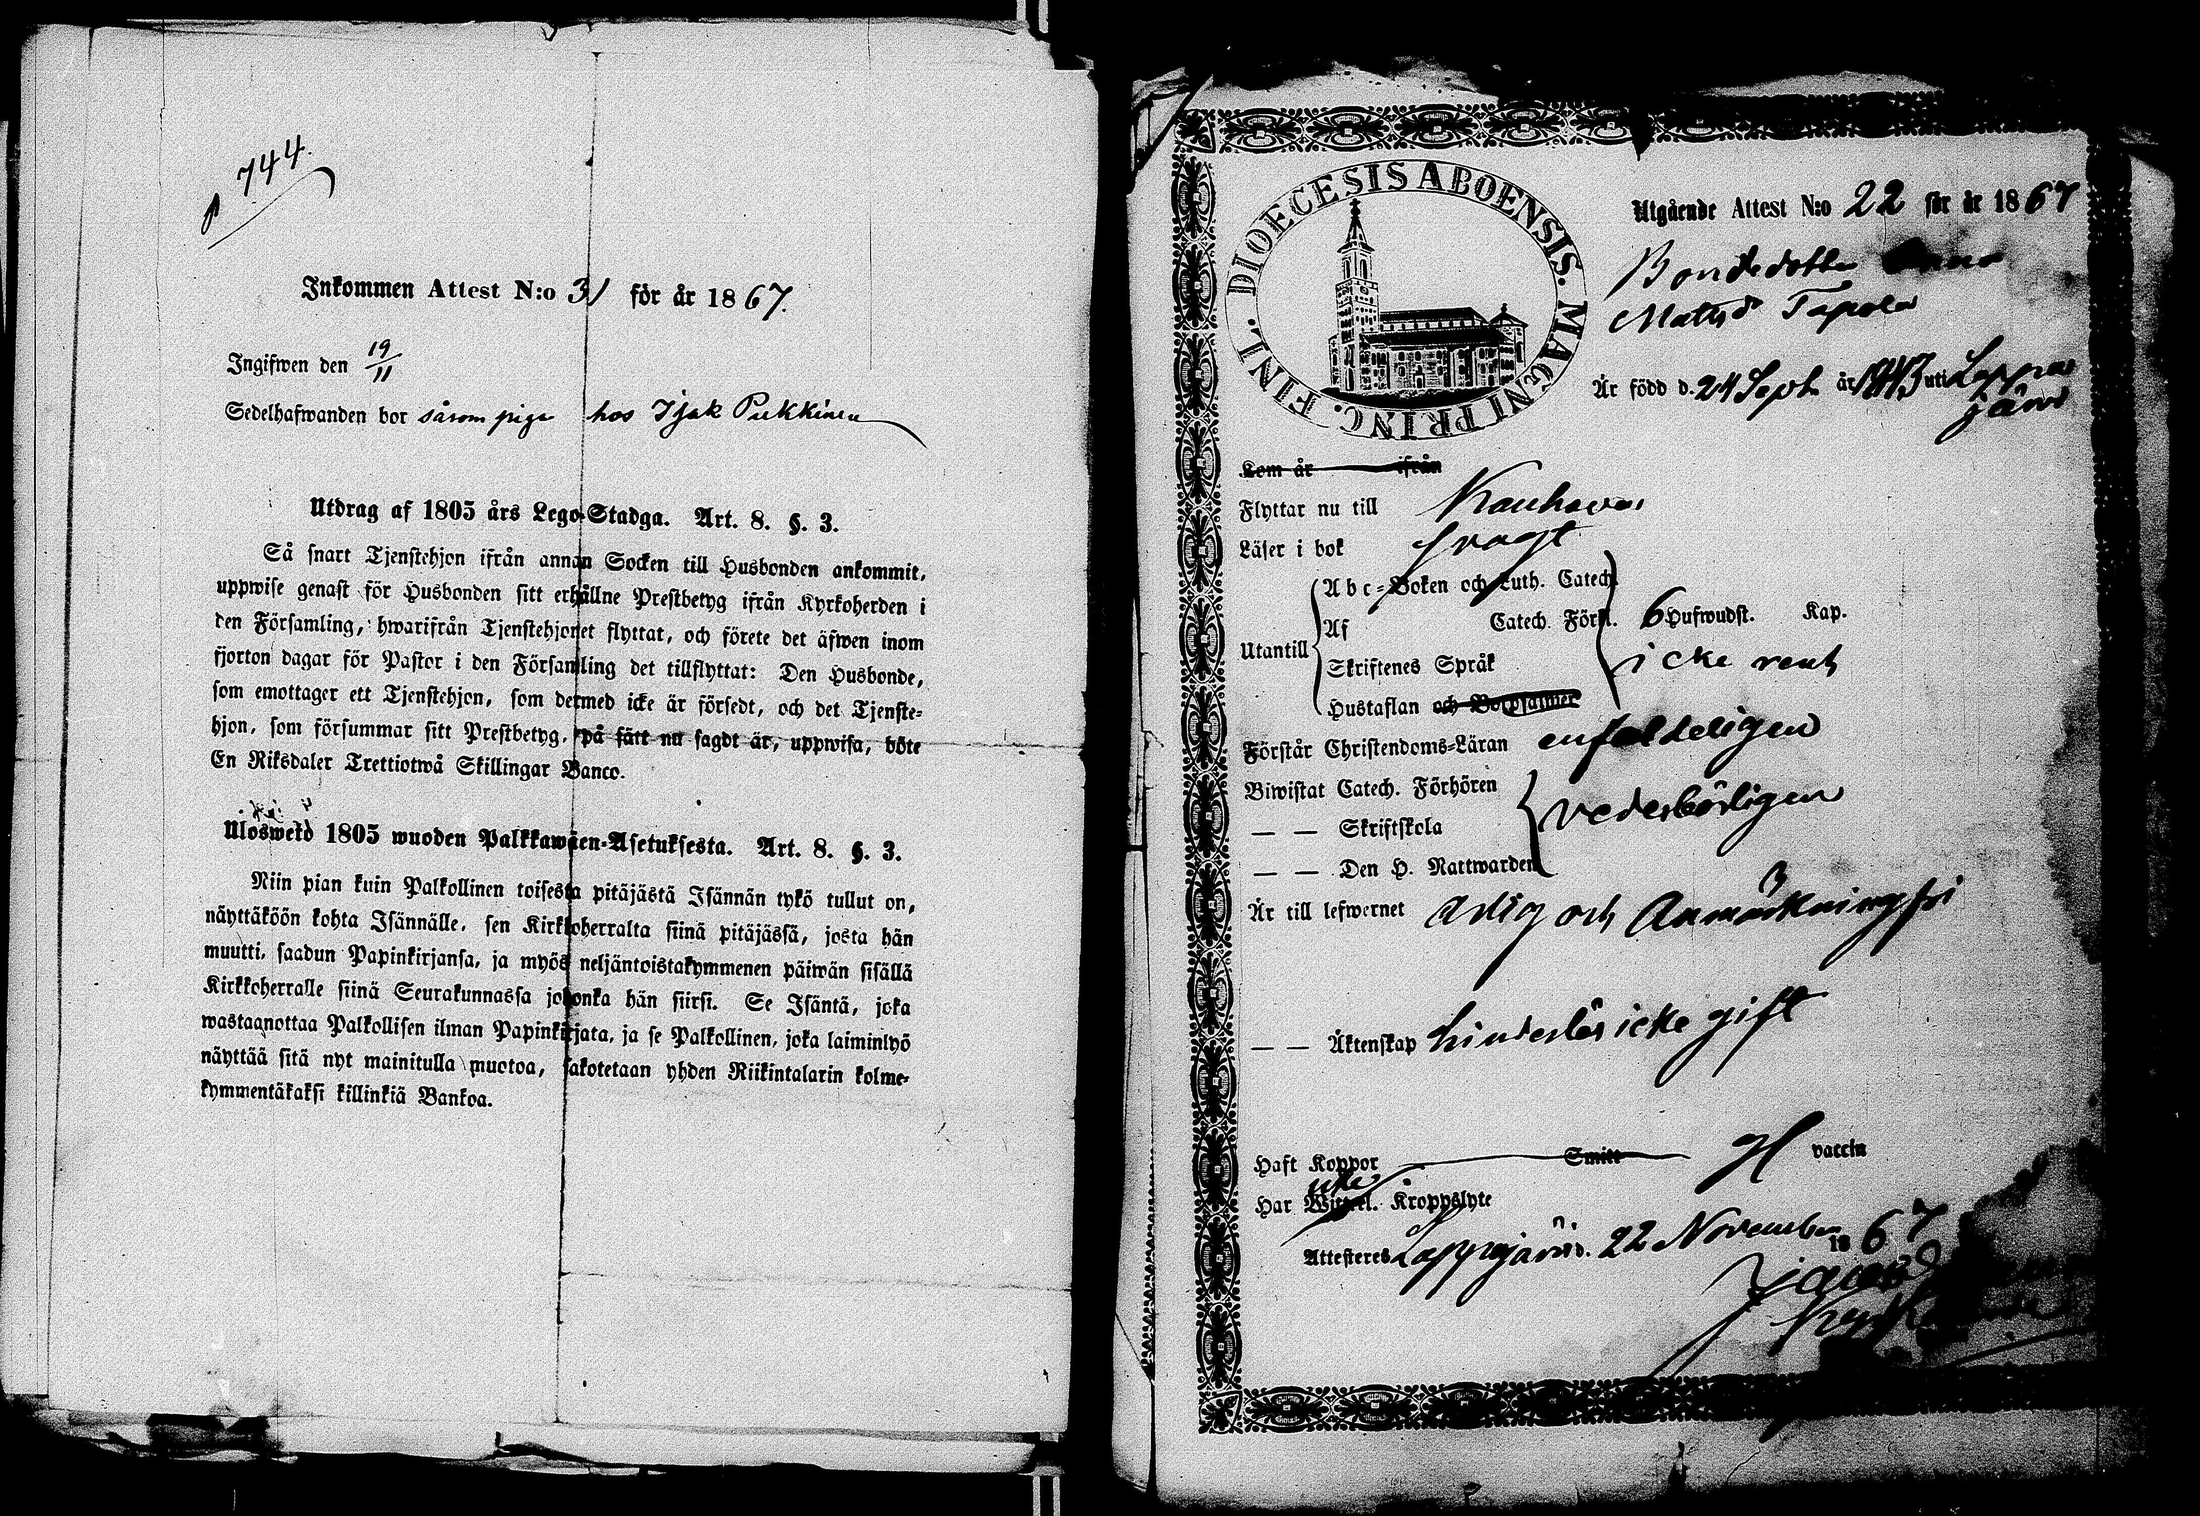 p 744.
Inkommen Attest N:o 31 för år 1867.
Ingifwen den 19/11
Sedelhafwanden bor såsom piga hos Isak Pukkinen
Utdrag af 1805 års Lego-Stadga. Art. 8. §. 3.
Så snart Tjenstehjon ifrån annan Socken till Husbonden ankommit,
uppwise genast för Husbonden sitt erhållne Prestbetyg ifrån Kyrkoherden i
den Församling, hwarifrån Tjenstehjonet flyttat, och förete det äfwen inom
fjorton dagar för Pastor i den Församling det tillflyttat: Den Husbonde,
som emottager ett Tjenstehjon, som dermed icke är försedt, och det Tjenste-
hjon, som försummar sitt Prestbetyg, på sätt nu sagdt är, uppwisa, böte
En Riksdaler Trettiotwå Skillingar Banco.
Ulosweto 1805 wuoden Palkkawäen-Asetuksesta. Art. 8. §. 3.
Niin pian kuin Palkollinen toisesta pitäjästä Isännän tykö tullut on,
näyttäköön kohta Isännälle, sen Kirkkoherralta siinä pitäjässä, josta hän
muutti, saadun Papinkirjansa, ja myös neljäntoistakymmenen päiwän sisällä
Kirkkoherralle siinä Seurakunnassa johonka hän siirsi. Se Isäntä, joka
wastaanottaa Palkollisen ilman Papinkirjata, ja se Palkollinen, joka laiminlyö
näyttää sitä nyt mainitulla muotoa, sakotetaan yhden Riikintalarin kolme-
kymmentäkaksi killinkiä Bankoa.
FINL. DIOECESIS ABOENSIS. MAGNI PRINC.
Utgående Attest N:o 22 för år 1867
Bondedottern Anna
Mattsd Tapola
Är född d. 24 Sept. år 1843 uti Lappa
järvi
Kom år ifrån
Flyttar nu till Kauhava
Läser i bok svagt
Utantill
Abc-Boken och Luth. Catech.
Af Catech. Förkl. 6 Hufwudst. Kap.
Skriftenes Språk icke rent
Hustaflan och Botpsalmer
Förstår Christendoms-Läran enfaldeligen
Biwistat Catech. Förhören
— — Skriftskola vederbörligen
— — Den H. Nattwarden
Är till lefwernet ärlig och Anmärkningsfri
— — Äktenskap hinderlös icke gift
Haft Koppor Smitt H vaccin
icke
Har Witterl. Kroppslyte
Attesteres Lappajärvi d. 22 November 1867
Jacob